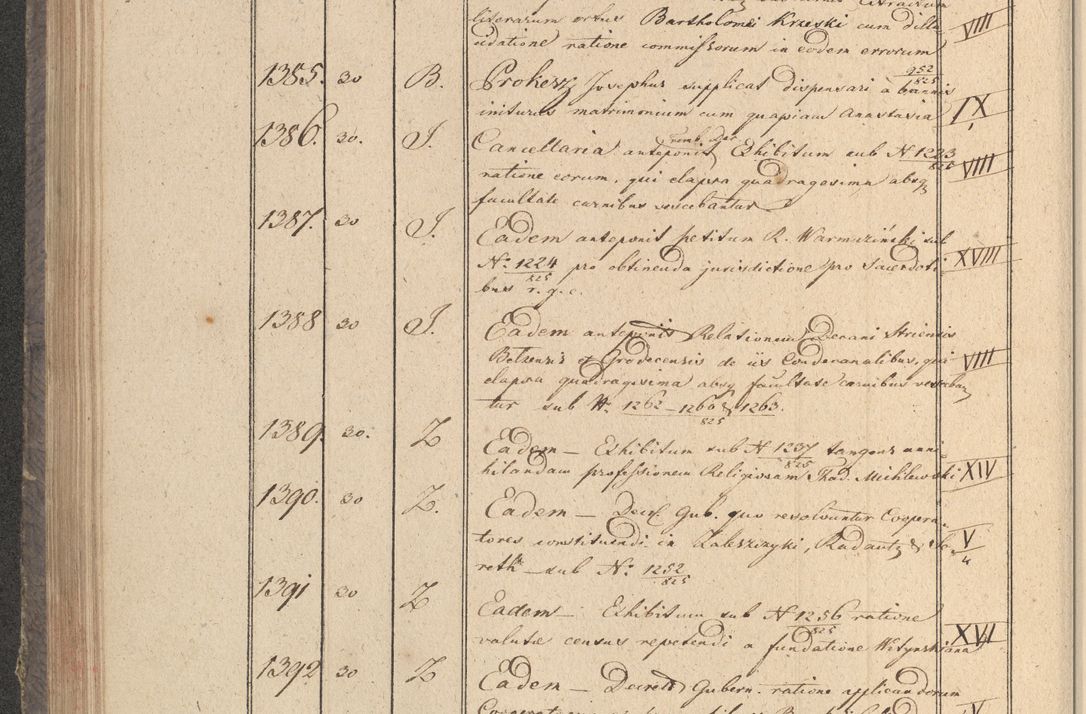 literarum ortus Bartholomei Krzeski cum dilu-
cidatione ratione commissorum in eodem errorum VIII
952/825
1385. 30 B. Prokesz Josephus supplicat dispensari à bannis
initurus matrimonium cum quapiam Anastasia IX
1386. 30. J. Cancellaria anteponit Exhibitum sub N 1223/825
ratione eorum, qui elapsa quadragesima absq VIII
facultate carnibus vescebantur
1387. 30 J. Eadem anteponit petitum R. Warmuziński sub
No. 1224/825 pro obtinenda jurisdictione pro Sacerdoti XVIII
bus r. g. c.
1388 30 J. Eadem anteponit Relationem Decani Striensis
Belzensis et Grodecensis de iis Condecanalibus, qui VIII
elapsa quadragesima absq facultate carnibus vesceban
tur sub N. 1262 - 1260 & 1263./825
1389. 30. Z Eadem — Exhibitum sub N 1237/825 tangens anni-
hilandam professionem Religiosam Thad. Michlewski XIV
1390. 30 Z. Eadem — Decr. Gub. quo resolvuntur Coopera-
tores constituendi in Zaleszczyki, Radautz & Se- V/4
reth sub No. 1252/825
1391 30 Z Eadem — Exhibitum sub N 1256/825 ratione
valutae census repetendi a fundatione Witynskiana XVII
1392 30 Z Eadem — Decreta Gubern. ratione applicandorum